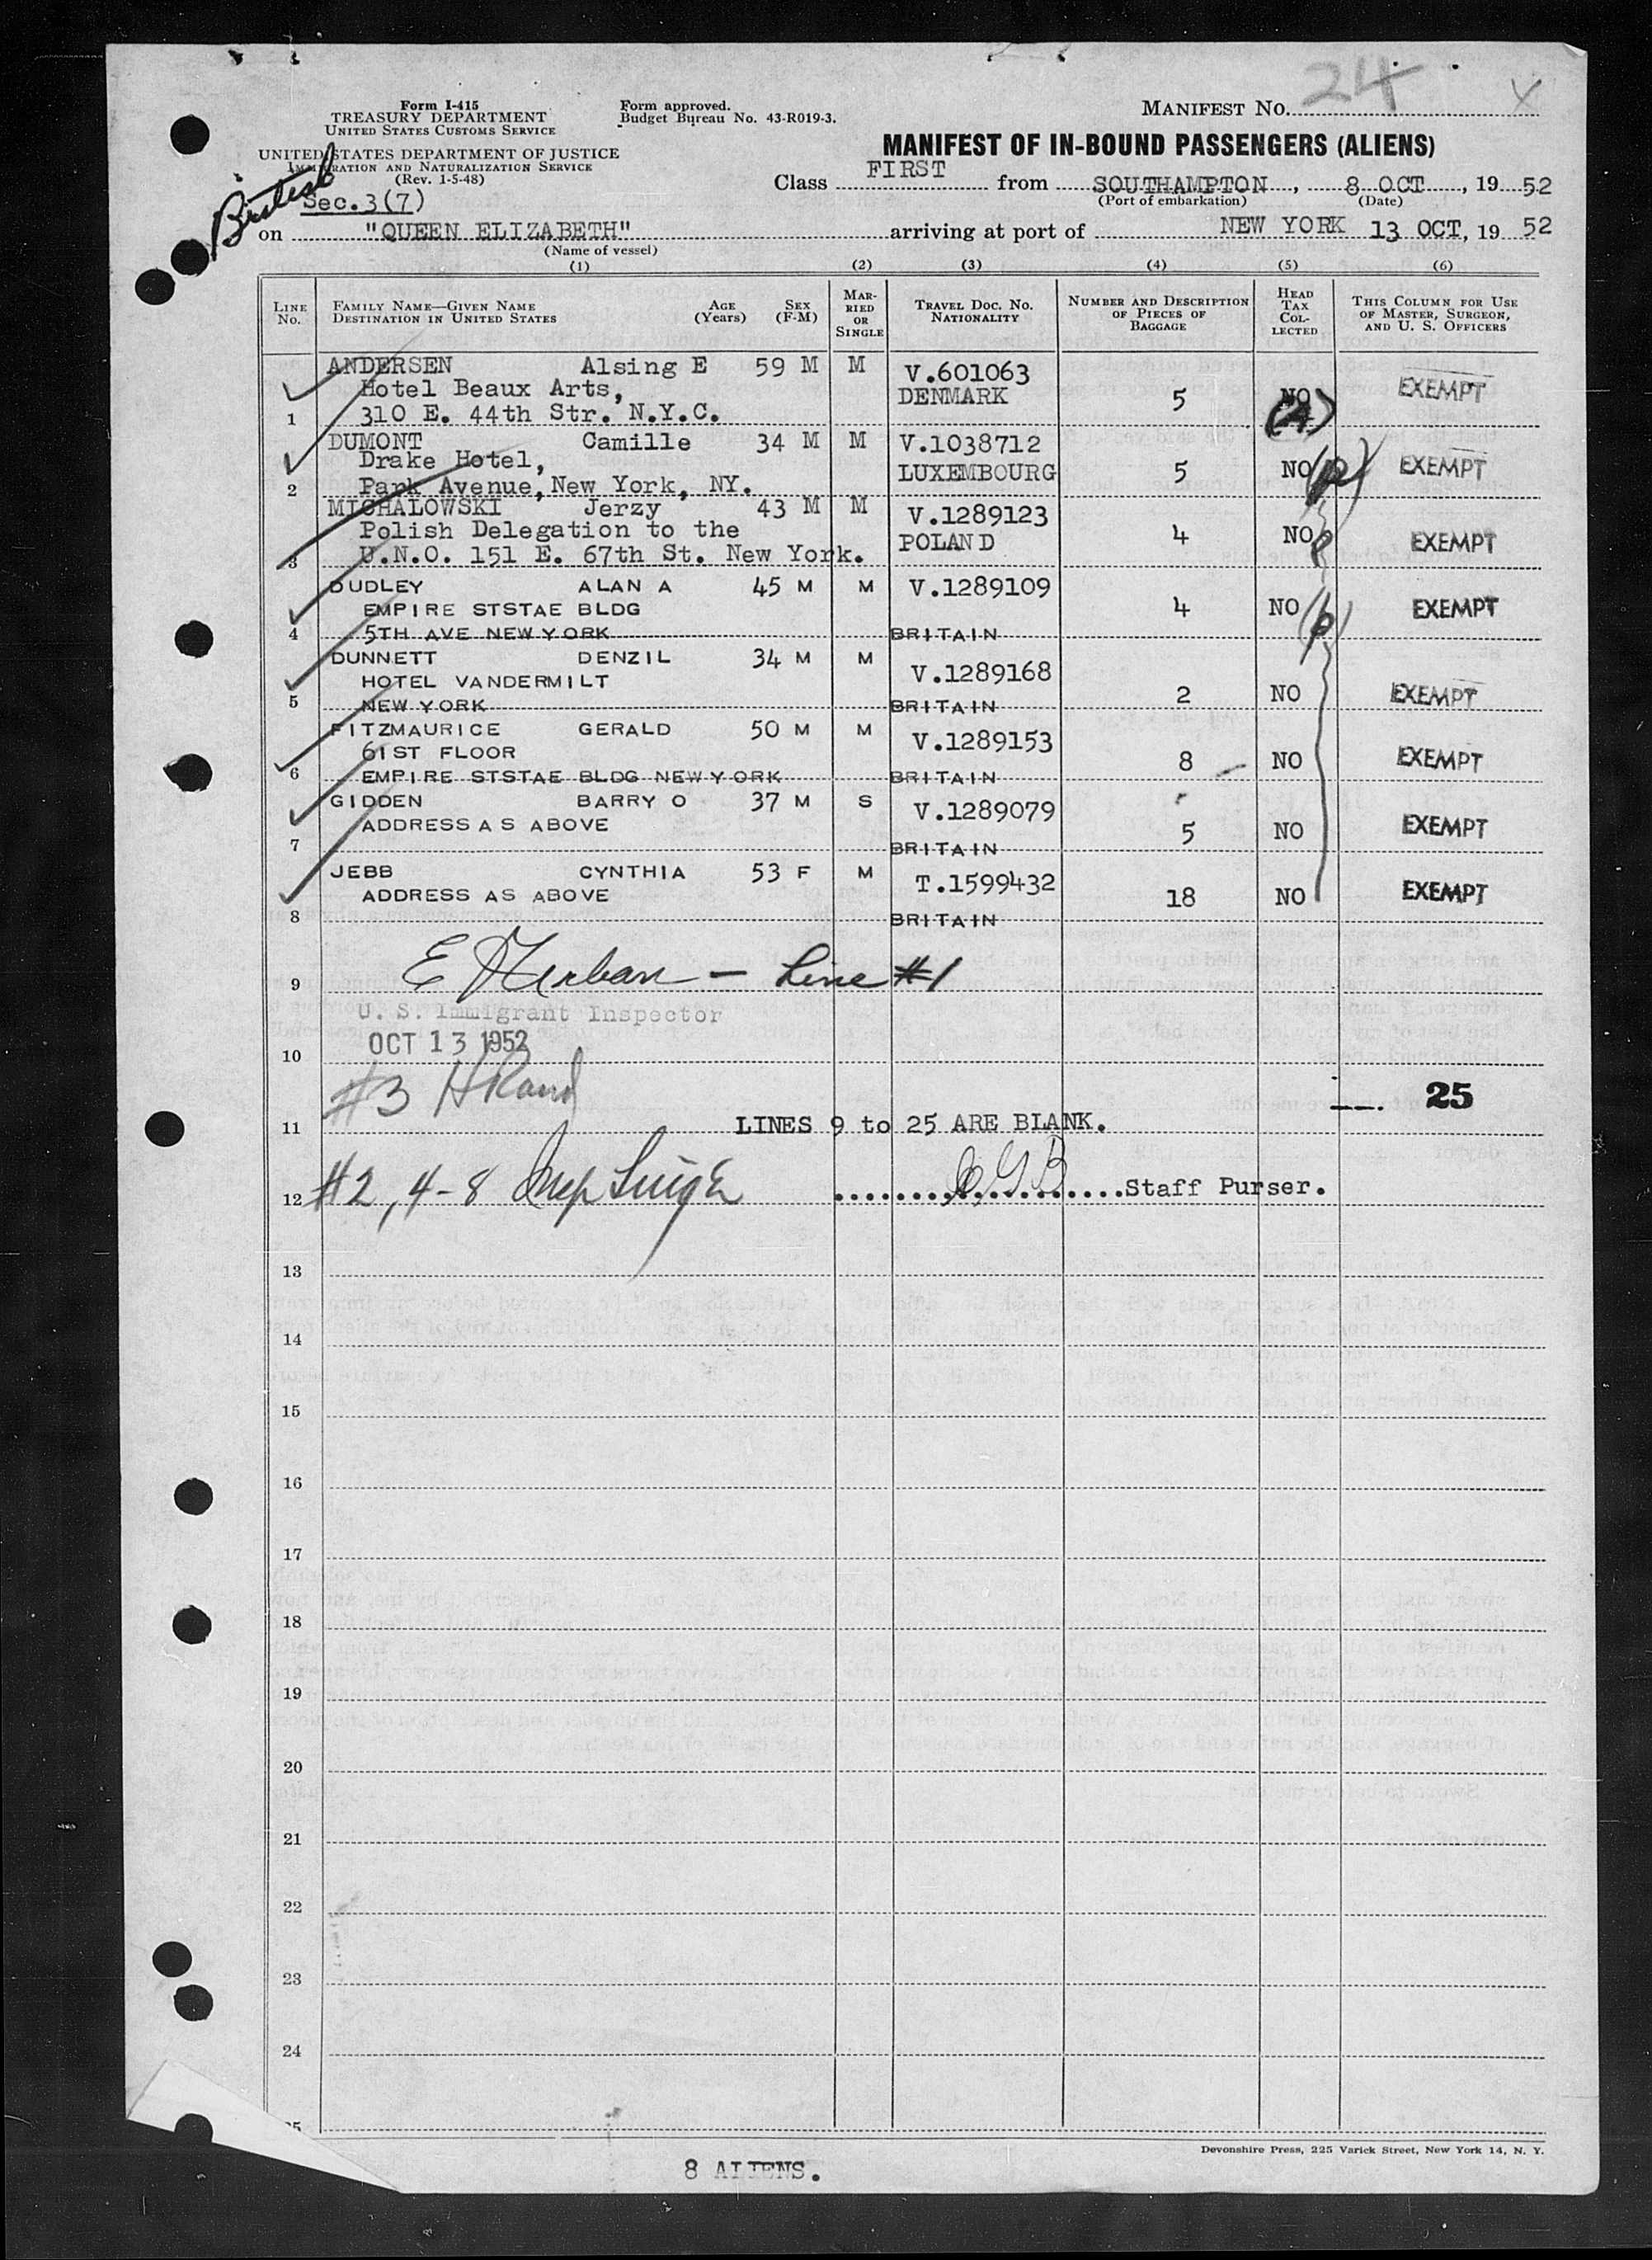 24
Form I-415
TREASURY DEPARTMENT
UNITED STATES CUSTOMS SERVICE
UNITED STATES DEPARTMENT OF JUSTICE
IMMIGRATION AND NATURALIZATION SERVICE
(Rev. 1-5-48)
Form approved.
Budget Bureau No. 43-R019-3.
MANIFEST No.
MANIFEST OF IN-BOUND PASSENGERS (ALIENS)
British
Sec.3(7)
Class FIRST from SOUTHAMPTON, 8 OCT, 19 52
(Port of embarkation) (Date)
on "QUEEN ELIZABETH" arriving at port of NEW YORK 13 OCT, 19 52
(Name of vessel)
(1) (2) (3) (4) (5) (6)
LINE No. FAMILY NAME—GIVEN NAME DESTINATION IN UNITED STATES AGE (Years) SEX (F-M) MARRIED OR SINGLE TRAVEL DOC. NO. NATIONALITY NUMBER AND DESCRIPTION OF PIECES OF BAGGAGE HEAD TAX COLLECTED THIS COLUMN FOR USE OF MASTER, SURGEON, AND U. S. OFFICERS
ANDERSEN Alsing E 59 M M V.601063
Hotel Beaux Arts, DENMARK 5 NO EXEMPT
1 310 E. 44th Str. N.Y.C.
DUMONT Camille 34 M M V.1038712
Drake Hotel, LUXEMBOURG 5 NO EXEMPT
2 Park Avenue, New York, NY.
MICHALOWSKI Jerzy 43 M M V.1289123
Polish Delegation to the POLAND 4 NO EXEMPT
3 U.N.O. 151 E. 67th St. New York.
DUDLEY ALAN A 45 M M V.1289109
EMPIRE STSTAE BLDG 4 NO EXEMPT
4 5TH AVE NEW YORK BRITAIN
DUNNETT DENZIL 34 M M V.1289168
HOTEL VANDERMILT 2 NO EXEMPT
5 NEW YORK BRITAIN
FITZMAURICE GERALD 50 M M V.1289153
61ST FLOOR 8 NO EXEMPT
6 EMPIRE STSTAE BLDG NEW YORK BRITAIN
GIDDEN BARRY O 37 M S V.1289079
ADDRESS AS ABOVE 5 NO EXEMPT
7 BRITAIN
JEBB CYNTHIA 53 F M T.1599432
ADDRESS AS ABOVE 18 NO EXEMPT
8 BRITAIN
9 — Line #1
U. S. Immigrant Inspector
10 OCT 13 1952
#3 25
11 LINES 9 to 25 ARE BLANK.
12 #2, 4-8 Staff Purser.
13
14
15
16
17
18
19
20
21
22
23
24
Devonshire Press, 225 Varick Street, New York 14, N. Y.
8 ALIENS.